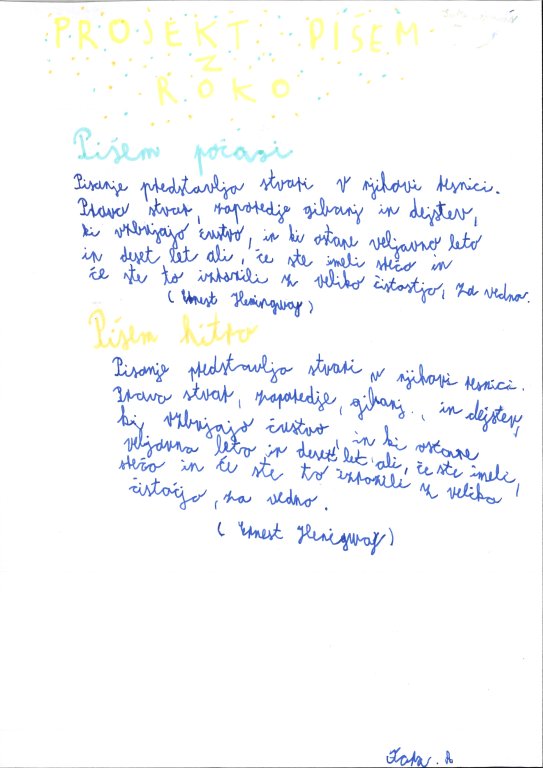 PROJEKT PIŠEM
Z
ROKO
Pišem počasi
Pisanje predstavlja stvari v njihovi resnici.
Prava stvar, zaporedje gibanj in dejstev,
ki vzbujajo čustvo, in ki ostane veljavno leto
in deset let ali, če ste imeli srečo in
če ste to izrazili z veliko čistostjo, za vedno.
(Ernest Hemingway)
Pišem hitro
Pisanje predstavlja stvari v njihovi resnici.
Prava stvar, zaporedje, gibanj, in dejstev,
ki vzbujajo čustvo, in ki ostane
veljavna leto in deset let ali, če ste imeli,
srečo in če ste to izrazili z veliko
čistočjo, za vedno.
(Ernest Henigway)